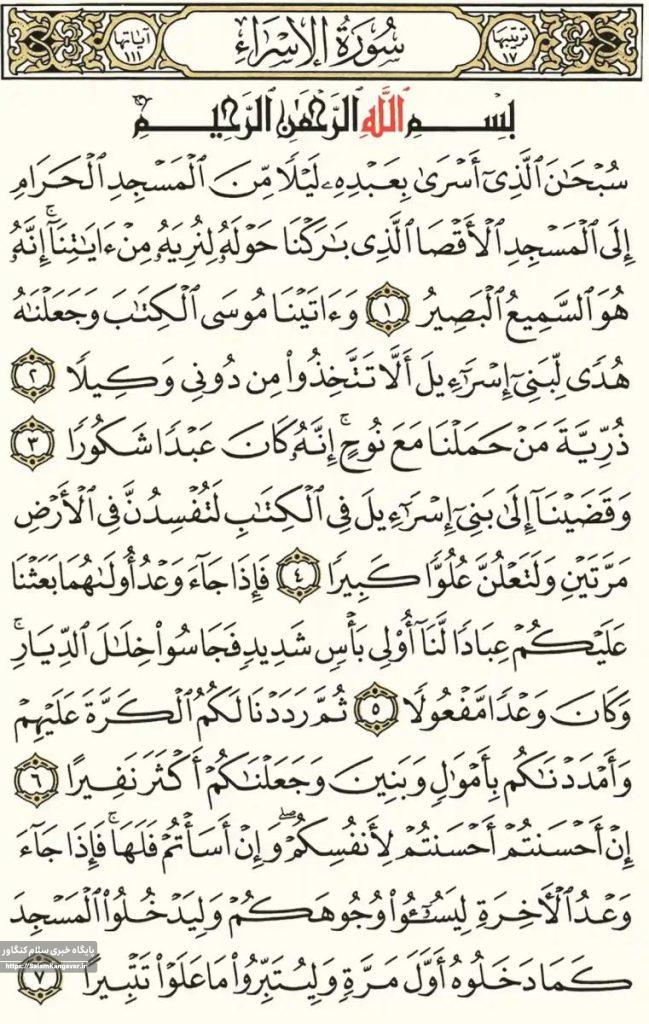 ترتيبها ١٧
سُورَةُ الإِسْرَاءِ
آياتها ١١١
بِسْمِ اللَّهِ الرَّحْمَٰنِ الرَّحِيمِ
سُبْحَٰنَ ٱلَّذِىٓ أَسْرَىٰ بِعَبْدِهِۦ لَيْلًا مِّنَ ٱلْمَسْجِدِ ٱلْحَرَامِ
إِلَى ٱلْمَسْجِدِ ٱلْأَقْصَا ٱلَّذِى بَٰرَكْنَا حَوْلَهُۥ لِنُرِيَهُۥ مِنْ ءَايَٰتِنَآ ۚ إِنَّهُۥ
هُوَ ٱلسَّمِيعُ ٱلْبَصِيرُ ١ وَءَاتَيْنَا مُوسَى ٱلْكِتَٰبَ وَجَعَلْنَٰهُ
هُدًى لِّبَنِىٓ إِسْرَٰٓءِيلَ أَلَّا تَتَّخِذُوا۟ مِن دُونِى وَكِيلًا ٢
ذُرِّيَّةَ مَنْ حَمَلْنَا مَعَ نُوحٍ ۚ إِنَّهُۥ كَانَ عَبْدًا شَكُورًا ٣
وَقَضَيْنَآ إِلَىٰ بَنِىٓ إِسْرَٰٓءِيلَ فِى ٱلْكِتَٰبِ لَتُفْسِدُنَّ فِى ٱلْأَرْضِ
مَرَّتَيْنِ وَلَتَعْلُنَّ عُلُوًّا كَبِيرًا ٤ فَإِذَا جَآءَ وَعْدُ أُولَىٰهُمَا بَعَثْنَا
عَلَيْكُمْ عِبَادًا لَّنَآ أُو۟لِى بَأْسٍ شَدِيدٍ فَجَاسُوا۟ خِلَٰلَ ٱلدِّيَارِ ۚ
وَكَانَ وَعْدًا مَّفْعُولًا ٥ ثُمَّ رَدَدْنَا لَكُمُ ٱلْكَرَّةَ عَلَيْهِمْ
وَأَمْدَدْنَٰكُم بِأَمْوَٰلٍ وَبَنِينَ وَجَعَلْنَٰكُمْ أَكْثَرَ نَفِيرًا ٦
إِنْ أَحْسَنتُمْ أَحْسَنتُمْ لِأَنفُسِكُمْ ۖ وَإِنْ أَسَأْتُمْ فَلَهَا ۚ فَإِذَا جَآءَ
وَعْدُ ٱلْءَاخِرَةِ لِيَسُۥٓـُٔوا۟ وُجُوهَكُمْ وَلِيَدْخُلُوا۟ ٱلْمَسْجِدَ
كَمَا دَخَلُوهُ أَوَّلَ مَرَّةٍ وَلِيُتَبِّرُوا۟ مَا عَلَوْا۟ تَتْبِيرًا ٧
پایگاه خبری سلام کنگاور
https://SalamKangavar.ir